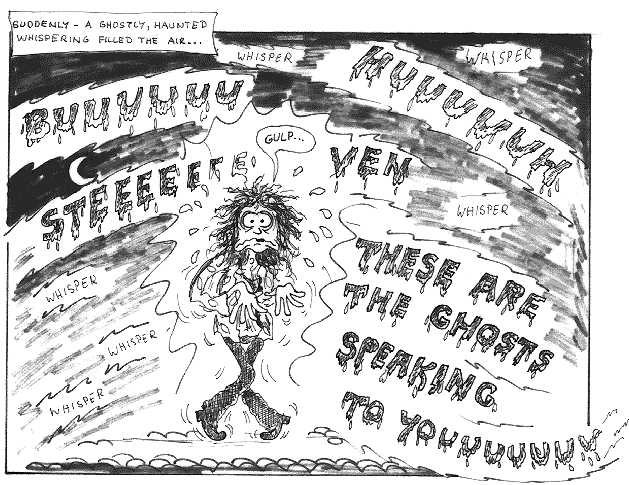 SUDDENLY - A GHOSTLY, HAUNTED
WHISPERING FILLED THE AIR...
WHISPER
WHISPER
BUUUUUU
HUUUUUUH
GULP...
STEEEEEEE
VEN
WHISPER
WHISPER
WHISPER
WHISPER
THESE ARE
THE GHOSTS
SPEAKING
TO YOUUUUUUUU